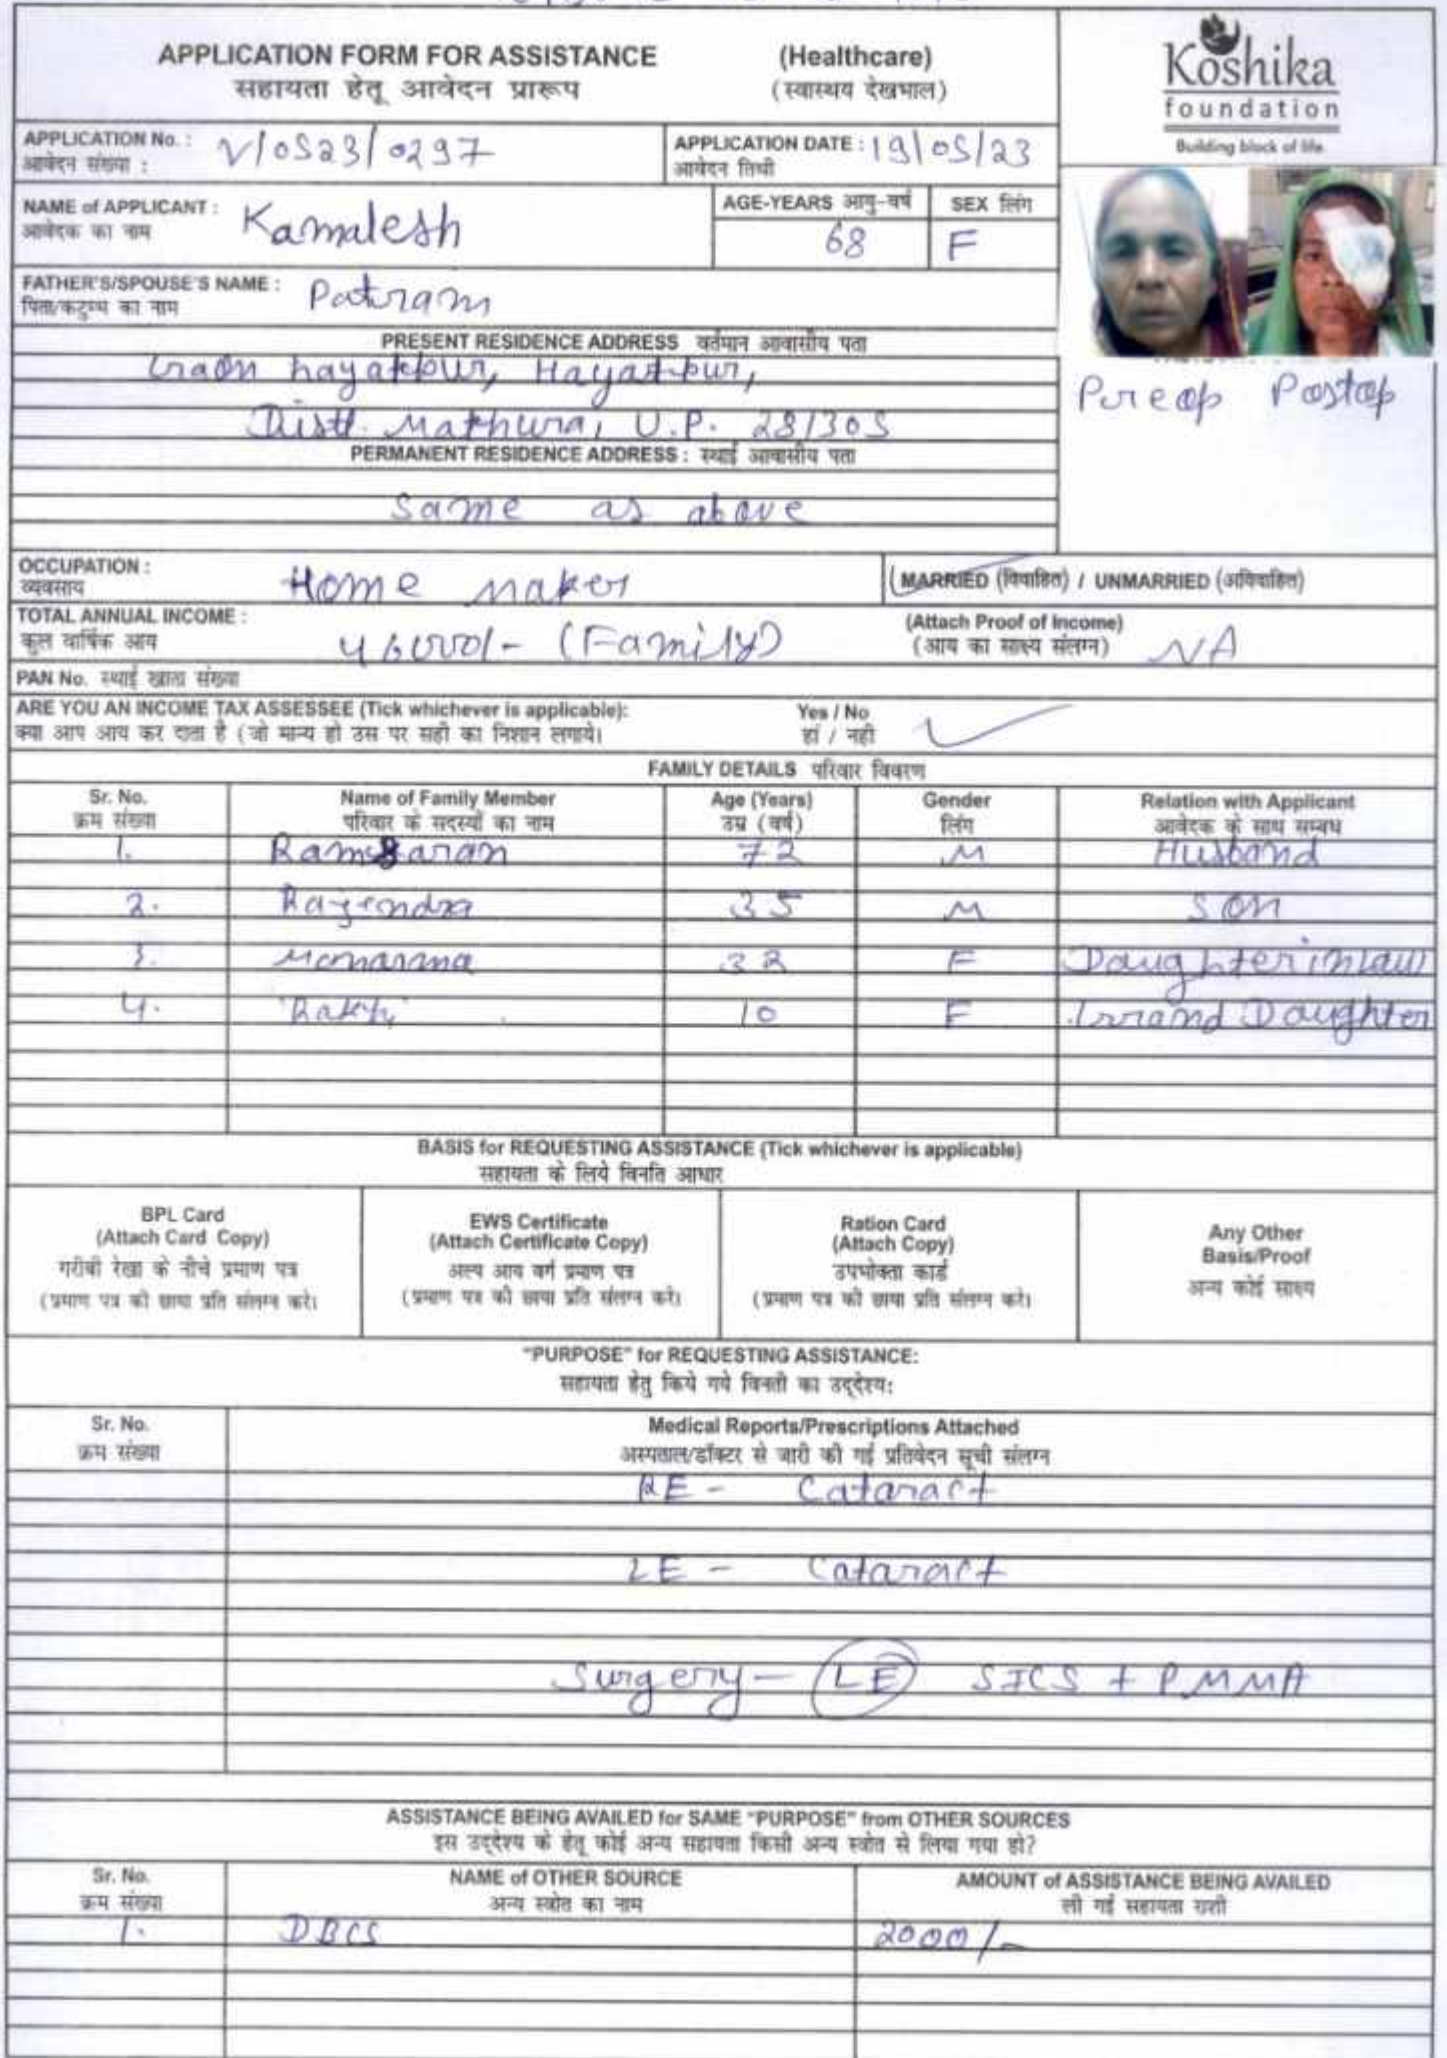 APPLICATION FORM FOR ASSISTANCE (Healthcare)
सहायता हेतू आवेदन प्रारूप (स्वास्थय देखभाल)
Koshika
foundation
Building block of life.
APPLICATION No. : V/0523/0297
आवेदन संख्या :
APPLICATION DATE : 19/05/23
आवेदन तिथी
NAME of APPLICANT : Kamalesh
आवेदक का नाम
AGE-YEARS आयु-वर्ष 68
SEX लिंग F
FATHER'S/SPOUSE'S NAME : Patram
पिता/कटुम्ब का नाम
PRESENT RESIDENCE ADDRESS वर्तमान आवासीय पता
Graon hayatpur, Hayatpur,
Distt. Mathura, U.P. 281305
Preop Postop
PERMANENT RESIDENCE ADDRESS : स्थाई आवासीय पता
Same as above
OCCUPATION : Home Maker
व्यवसाय
MARRIED (विवाहित) / UNMARRIED (अविवाहित)
TOTAL ANNUAL INCOME : (Family)
कुल वार्षिक आय
(Attach Proof of Income)
(आय का साक्ष्य संलग्न) NA
PAN No. स्थाई खाता संख्या
ARE YOU AN INCOME TAX ASSESSEE (Tick whichever is applicable): Yes / No
क्या आप आय कर दाता है (जो मान्य हो उस पर सही का निशान लगाये। हां / नही
FAMILY DETAILS परिवार विवरण
Sr. No. Name of Family Member Age (Years) Gender Relation with Applicant
क्रम संख्या परिवार के सदस्यों का नाम उम्र (वर्ष) लिंग आवेदक के साथ सम्बध
1. Ramsaran 72 M Husband
2. Rajendra 35 M SON
3. 32 F Daughter in law
4. 10 F Grand Daughter
BASIS for REQUESTING ASSISTANCE (Tick whichever is applicable)
सहायता के लिये विनति आधार
BPL Card
(Attach Card Copy)
गरीबी रेखा के नीचे प्रमाण पत्र
(प्रमाण पत्र की छाया प्रति संलग्न करे।
EWS Certificate
(Attach Certificate Copy)
अल्प आय वर्ग प्रमाण पत्र
(प्रमाण पत्र की छाया प्रति संलग्न करे।
Ration Card
(Attach Copy)
उपभोक्ता कार्ड
(प्रमाण पत्र की छाया प्रति संलग्न करे।
Any Other
Basis/Proof
अन्य कोई साक्ष्य
"PURPOSE" for REQUESTING ASSISTANCE:
सहायता हेतु किये गये विनती का उद्देश्य:
Sr. No. Medical Reports/Prescriptions Attached
क्रम संख्या अस्पताल/डॉक्टर से जारी की गई प्रतिवेदन सूची संलग्न
RE - Cataract
LE - Cataract
Surgery - LE SICS + PMMA
ASSISTANCE BEING AVAILED for SAME "PURPOSE" from OTHER SOURCES
इस उद्देश्य के हेतू कोई अन्य सहायता किसी अन्य स्त्रोत से लिया गया हो?
Sr. No. NAME of OTHER SOURCE AMOUNT of ASSISTANCE BEING AVAILED
क्रम संख्या अन्य स्त्रोत का नाम ली गई सहायता राशी
1. DBCS 2000/-